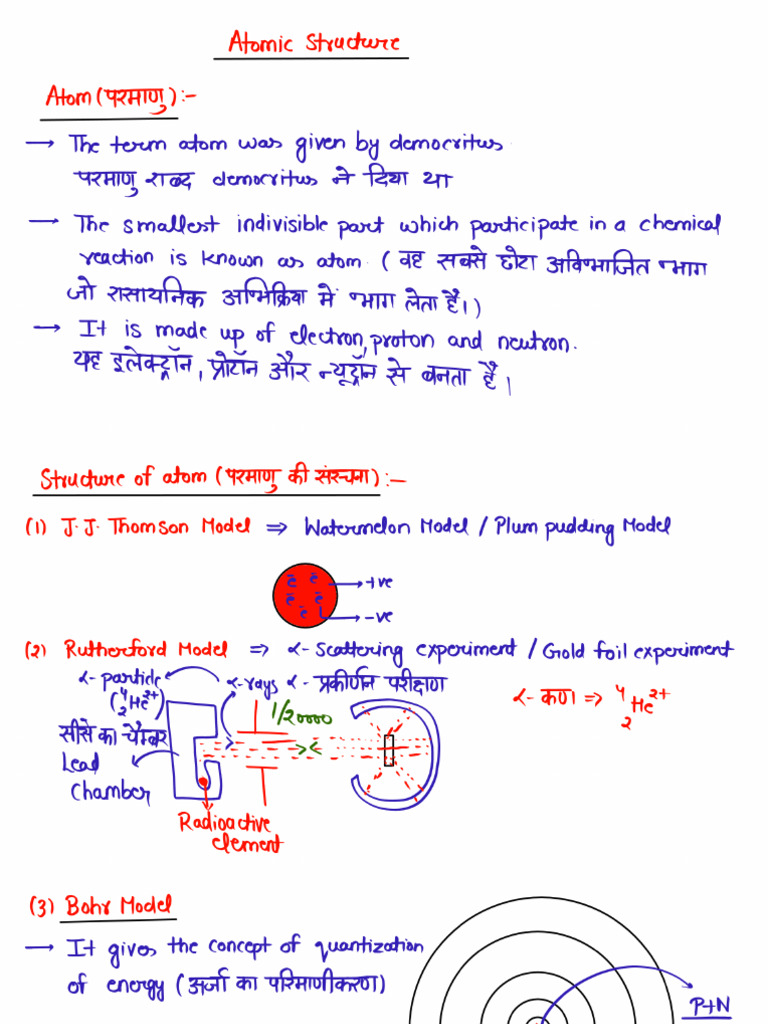 Atomic Structure
Atom (परमाणु) :-
→ The term atom was given by democritus
परमाणु शब्द democritus ने दिया था
→ The smallest indivisible part which participate in a chemical
reaction is known as atom. ( वह सबसे छोटा अविभाजित भाग
जो रासायनिक अभिक्रिया में भाग लेता है। )
→ It is made up of electron, proton and neutron.
यह इलेक्ट्रॉन, प्रोटॉन और न्यूट्रॉन से बनता है।
Structure of atom (परमाणु की संरचना) :-
(1) J.J. Thomson Model ⇒ Watermelon Model / Plum pudding Model
ē ē
ē ē
ē
→ +ve
→ -ve
(2) Rutherford Model ⇒ α-scattering experiment / Gold foil experiment
α-particle
(⁴₂He²⁺)
α-rays
α-प्रकीर्णन परीक्षण
α-कण ⇒ ⁴₂He²⁺
1/20000
सीसे का चैम्बर
Lead
Chamber
Radioactive
element
(3) Bohr Model
→ It gives the concept of quantization
of energy (अर्जा का परिमाणीकरण)
P+N